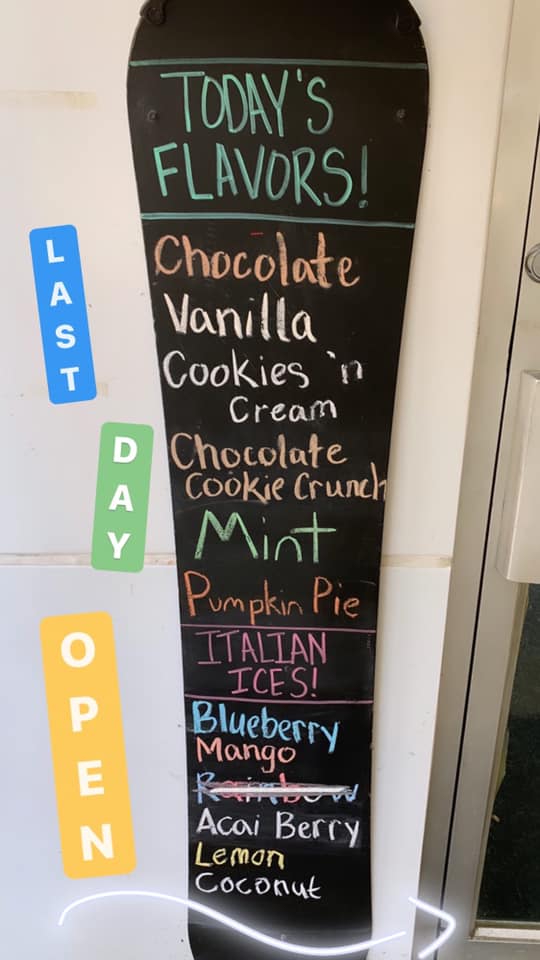 TODAY'S
FLAVORS!
Chocolate
Vanilla
Cookies 'n
Cream
Chocolate
Cookie Crunch
Mint
Pumpkin Pie
ITALIAN
ICES!
Blueberry
Mango
Rainbow
Acai Berry
Lemon
Coconut
LAST
DAY
OPEN